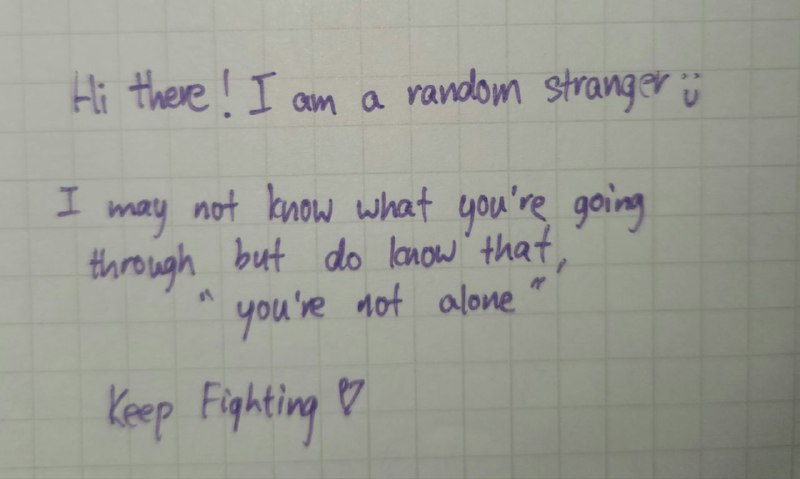 Hi there! I am a random stranger ü
I may not know what you're going
through but do know that,
" you're not alone "
Keep Fighting ♡